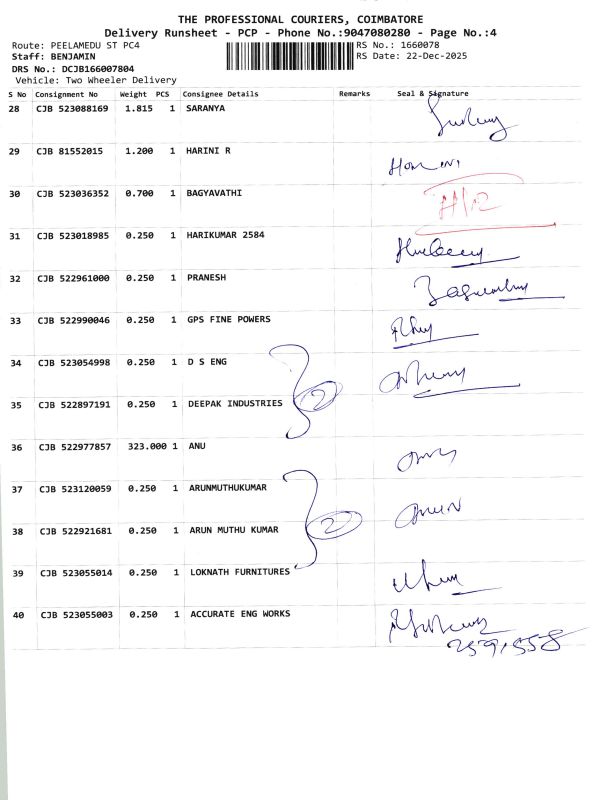 THE PROFESSIONAL COURIERS, COIMBATORE
Delivery Runsheet - PCP - Phone No.:9047080280 - Page No.:4
Route: PEELAMEDU ST PC4 RS No.: 1660078
Staff: BENJAMIN RS Date: 22-Dec-2025
DRS No.: DCJB166007804
Vehicle: Two Wheeler Delivery
S No Consignment No Weight PCS Consignee Details Remarks Seal & Signature
28 CJB 523088169 1.815 1 SARANYA
29 CJB 81552015 1.200 1 HARINI R
30 CJB 523036352 0.700 1 BAGYAVATHI
31 CJB 523018985 0.250 1 HARIKUMAR 2584
32 CJB 522961000 0.250 1 PRANESH
33 CJB 522990046 0.250 1 GPS FINE POWERS
34 CJB 523054998 0.250 1 D S ENG
2
35 CJB 522897191 0.250 1 DEEPAK INDUSTRIES
36 CJB 522977857 323.000 1 ANU
37 CJB 523120059 0.250 1 ARUNMUTHUKUMAR
2
38 CJB 522921681 0.250 1 ARUN MUTHU KUMAR
39 CJB 523055014 0.250 1 LOKNATH FURNITURES
40 CJB 523055003 0.250 1 ACCURATE ENG WORKS